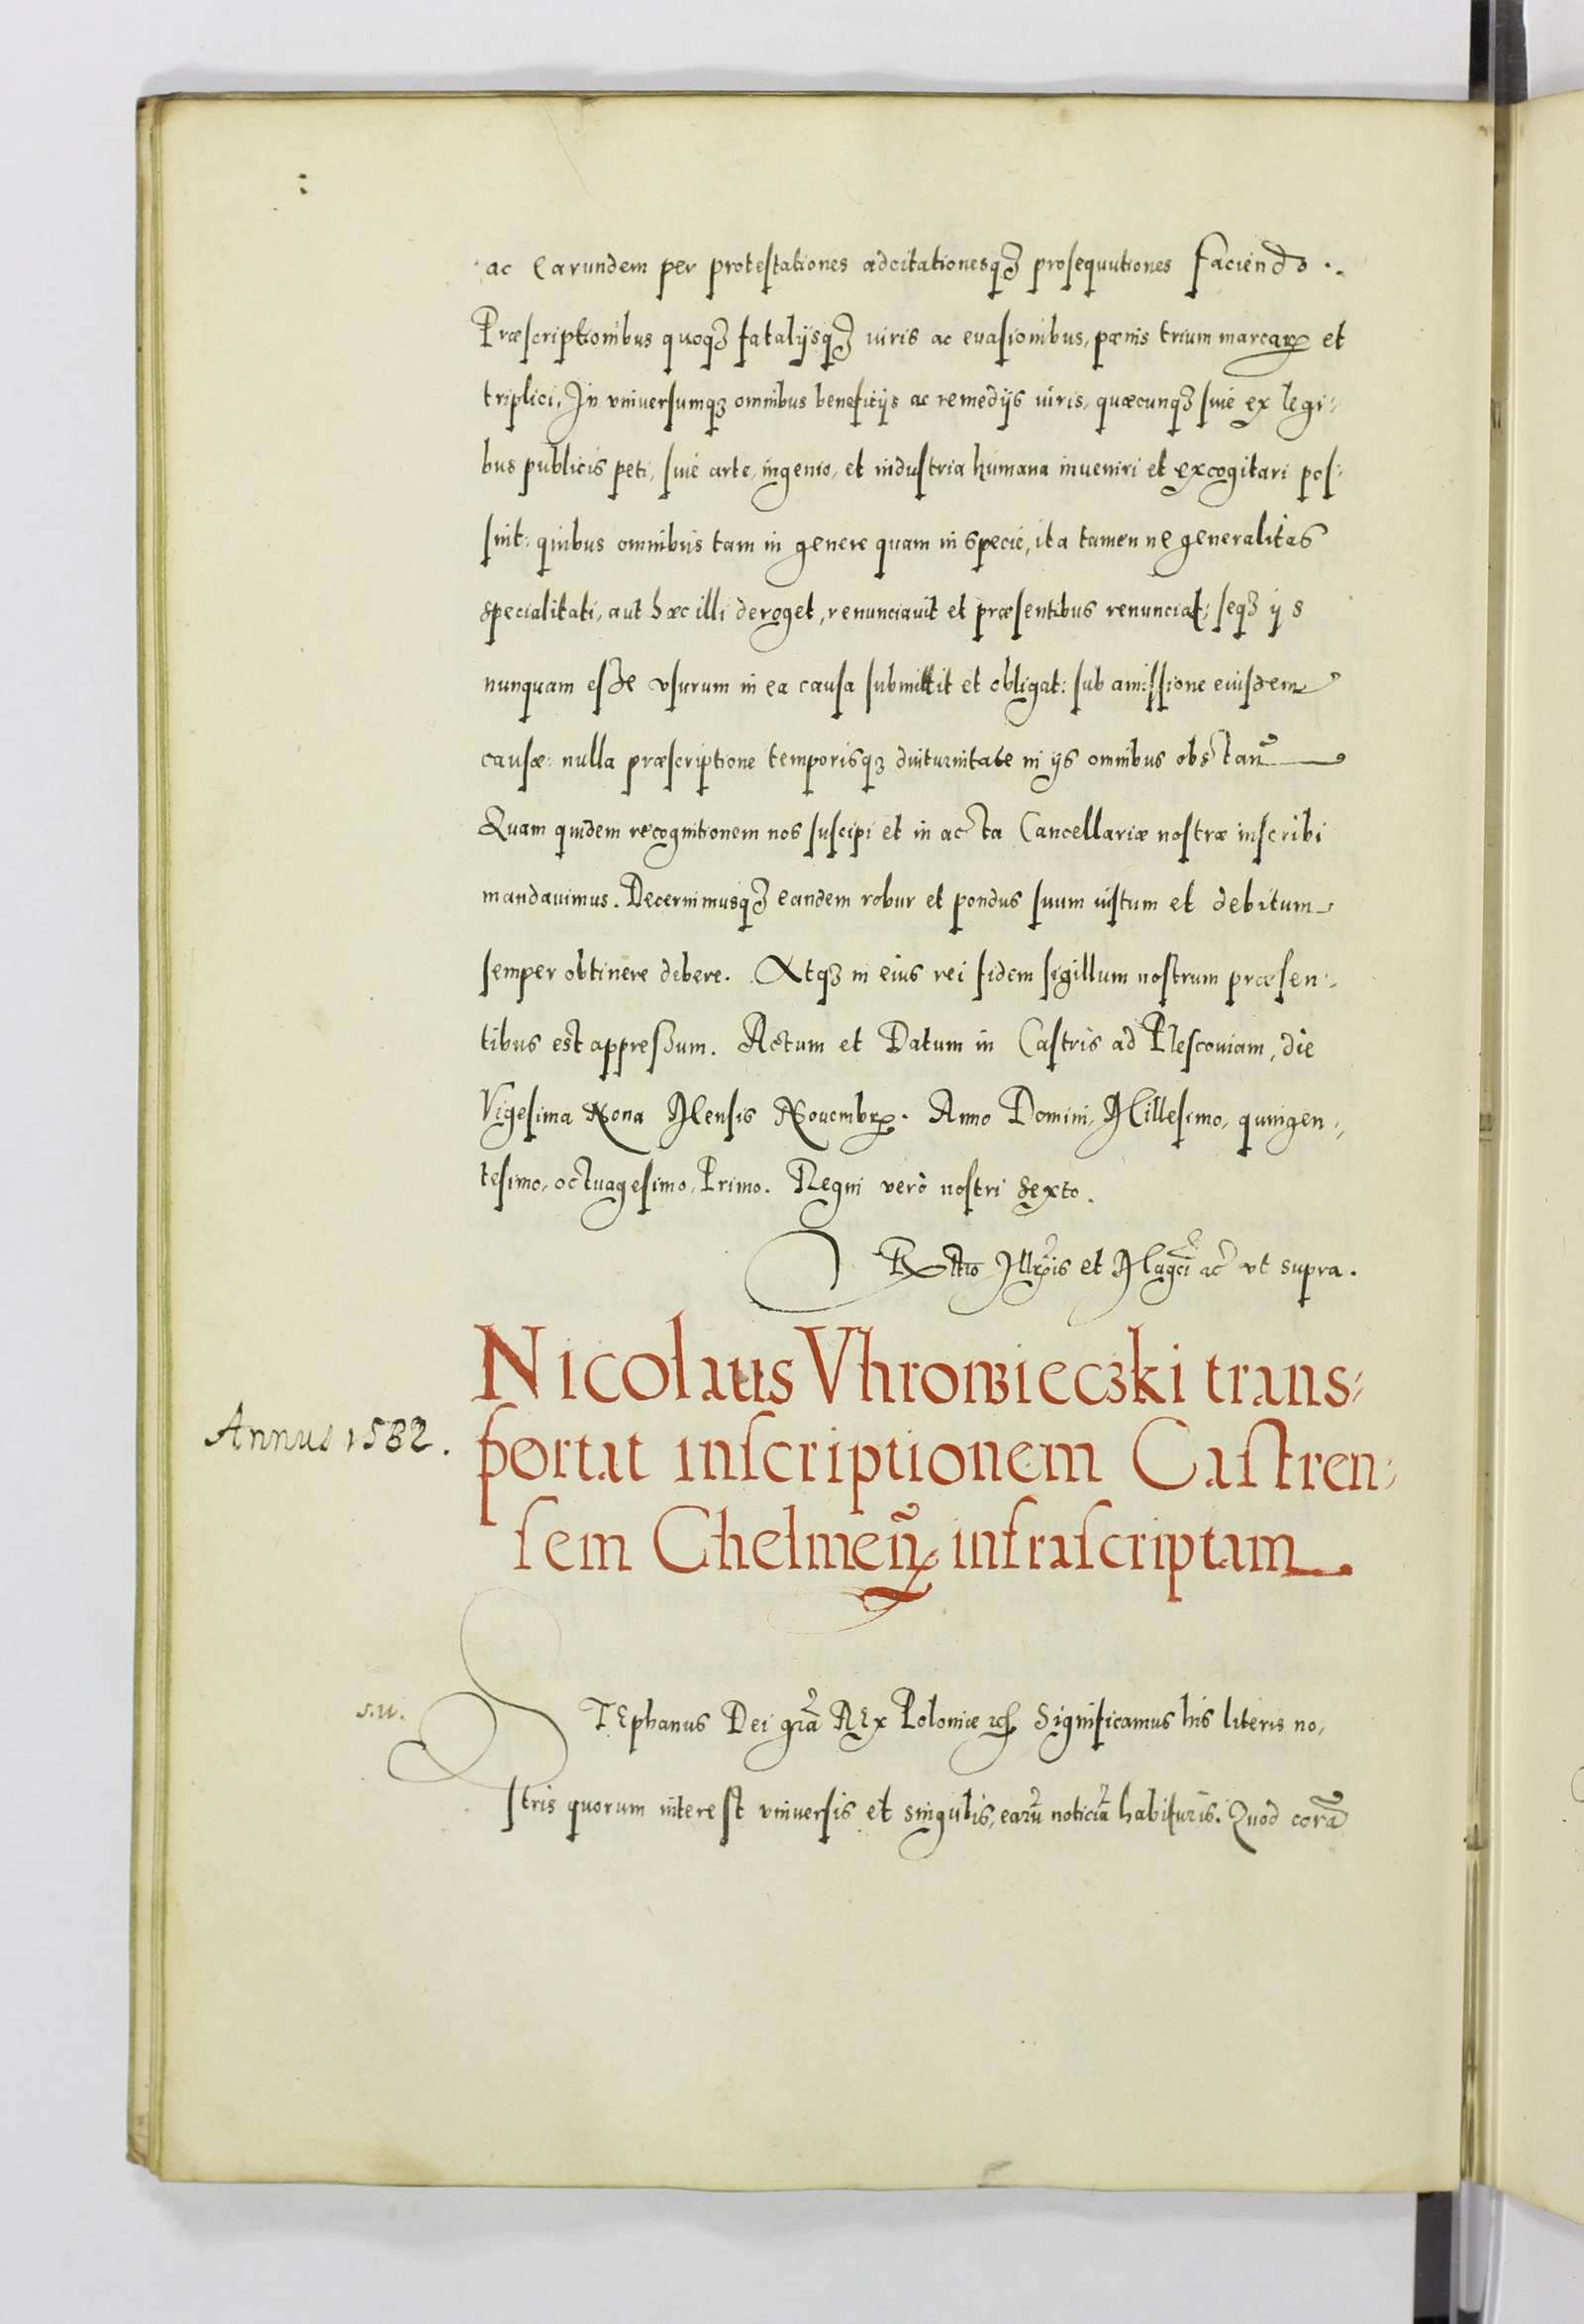 ac earundem per protestationes adcitationesqꝫ prosequutiones faciendo.
Præscriptionibus quoqꝫ fatalijsqꝫ iuris ac euasionibus, pænis trium marcarꝝ et
triplici. In vniuersumqꝫ omnibus beneficijs ac remedijs iuris, quæcunqꝫ siue ex legi:
bus publicis peti, siue arte, ingenio, et industria humana inueniri et excogitari pos:
sint: quibus omnibus tam in genere quam in specie, ita tamen ne generalitas
specialitati, aut hæc illi deroget, renunciauit et præsentibus renunciat: seqꝫ ijs
nunquam esse vsurum in ea causa submittit et obligat: sub amissione eiusdem
causæ: nulla præscriptione temporisqꝫ diuturnitate in ijs omnibus obstañ
Quam quidem recognitionem nos suscipi et in acta Cancellariæ nostræ inscribi
mandauimus. Decernimusqꝫ eandem robur et pondus suum iustum et debitum
semper obtinere debere. Atqꝫ in eius rei fidem sigillum nostrum præsen:
tibus est appressum. Actum et Datum in Castris ad Plescouiam, die
Vigesima Nona Mensis Nouembrꝭ. Anno Domini, Millesimo, quingen:
tesimo, octuagesimo, Primo. Regni verò nostri sexto.
Rltio Illrꝭis et Magci ac vt supra.
Nicolaus Vhrowieczki trans:
portat inscriptionem Castren:
sem Chelmeñ infrascriptam.
Annus 1582.
s.w.
STEphanus Dei gr̃a REx Poloniæ ꝛc̃ Significamus his literis no,
stris quorum interest vniuersis et singulis, earũ noticiã habituris. Quod corã